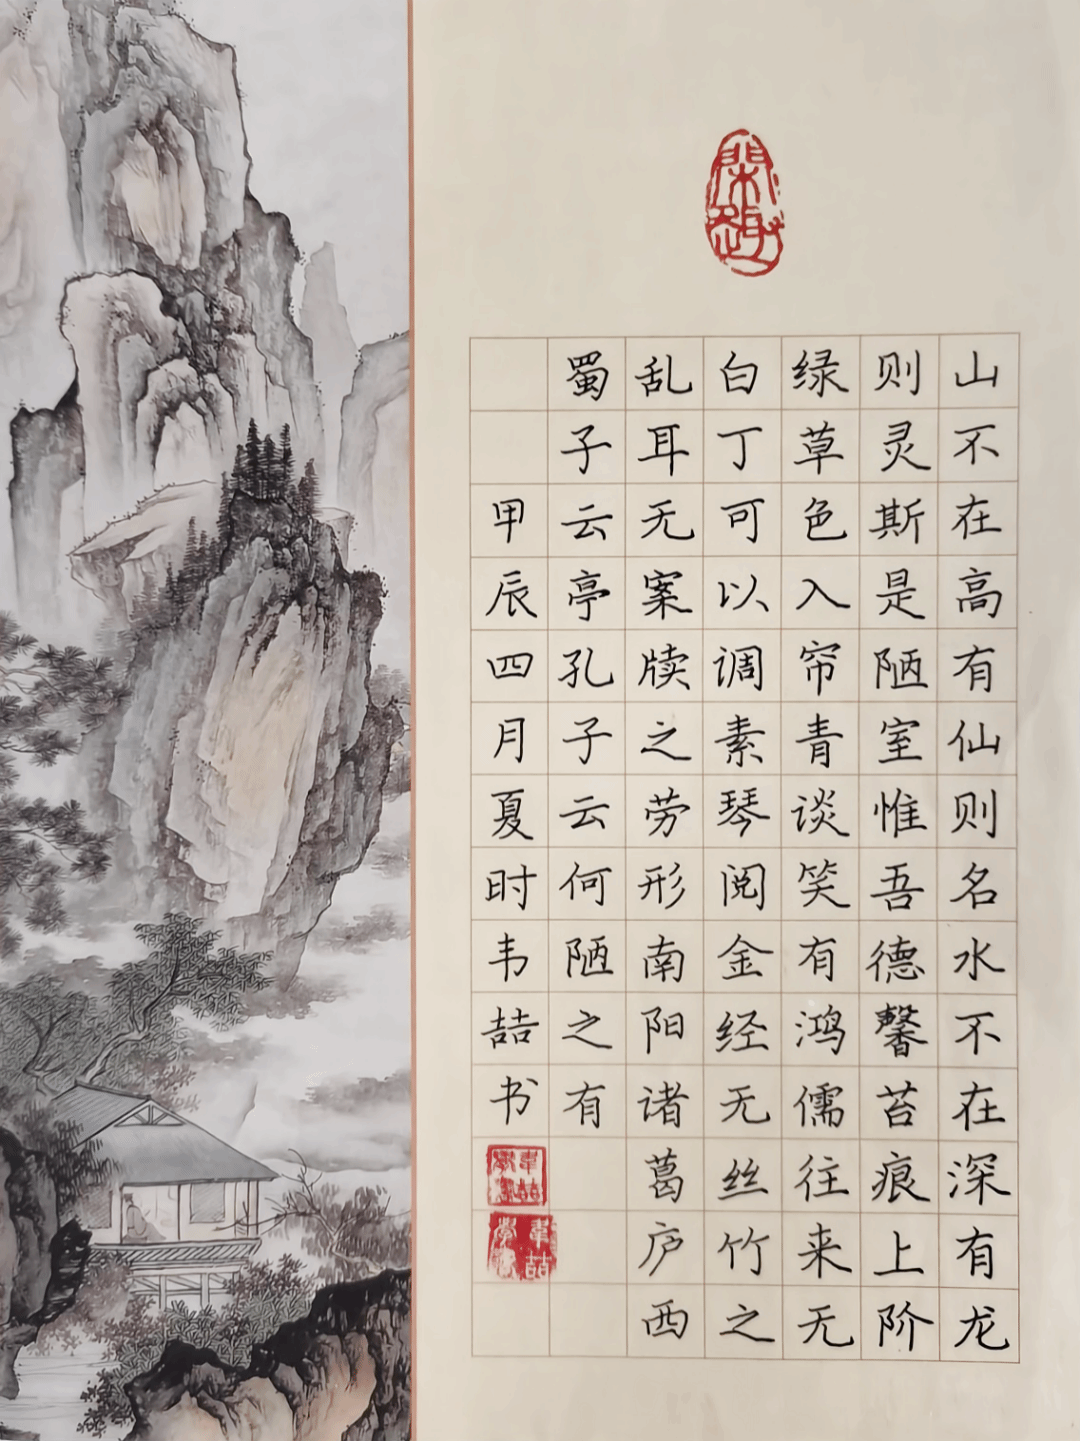 山不在高有仙则名水不在深有龙
则灵斯是陋室惟吾德馨苔痕上阶
绿草色入帘青谈笑有鸿儒往来无
白丁可以调素琴阅金经无丝竹之
乱耳无案牍之劳形南阳诸葛庐西
蜀子云亭孔子云何陋之有
甲辰四月夏时韦喆书